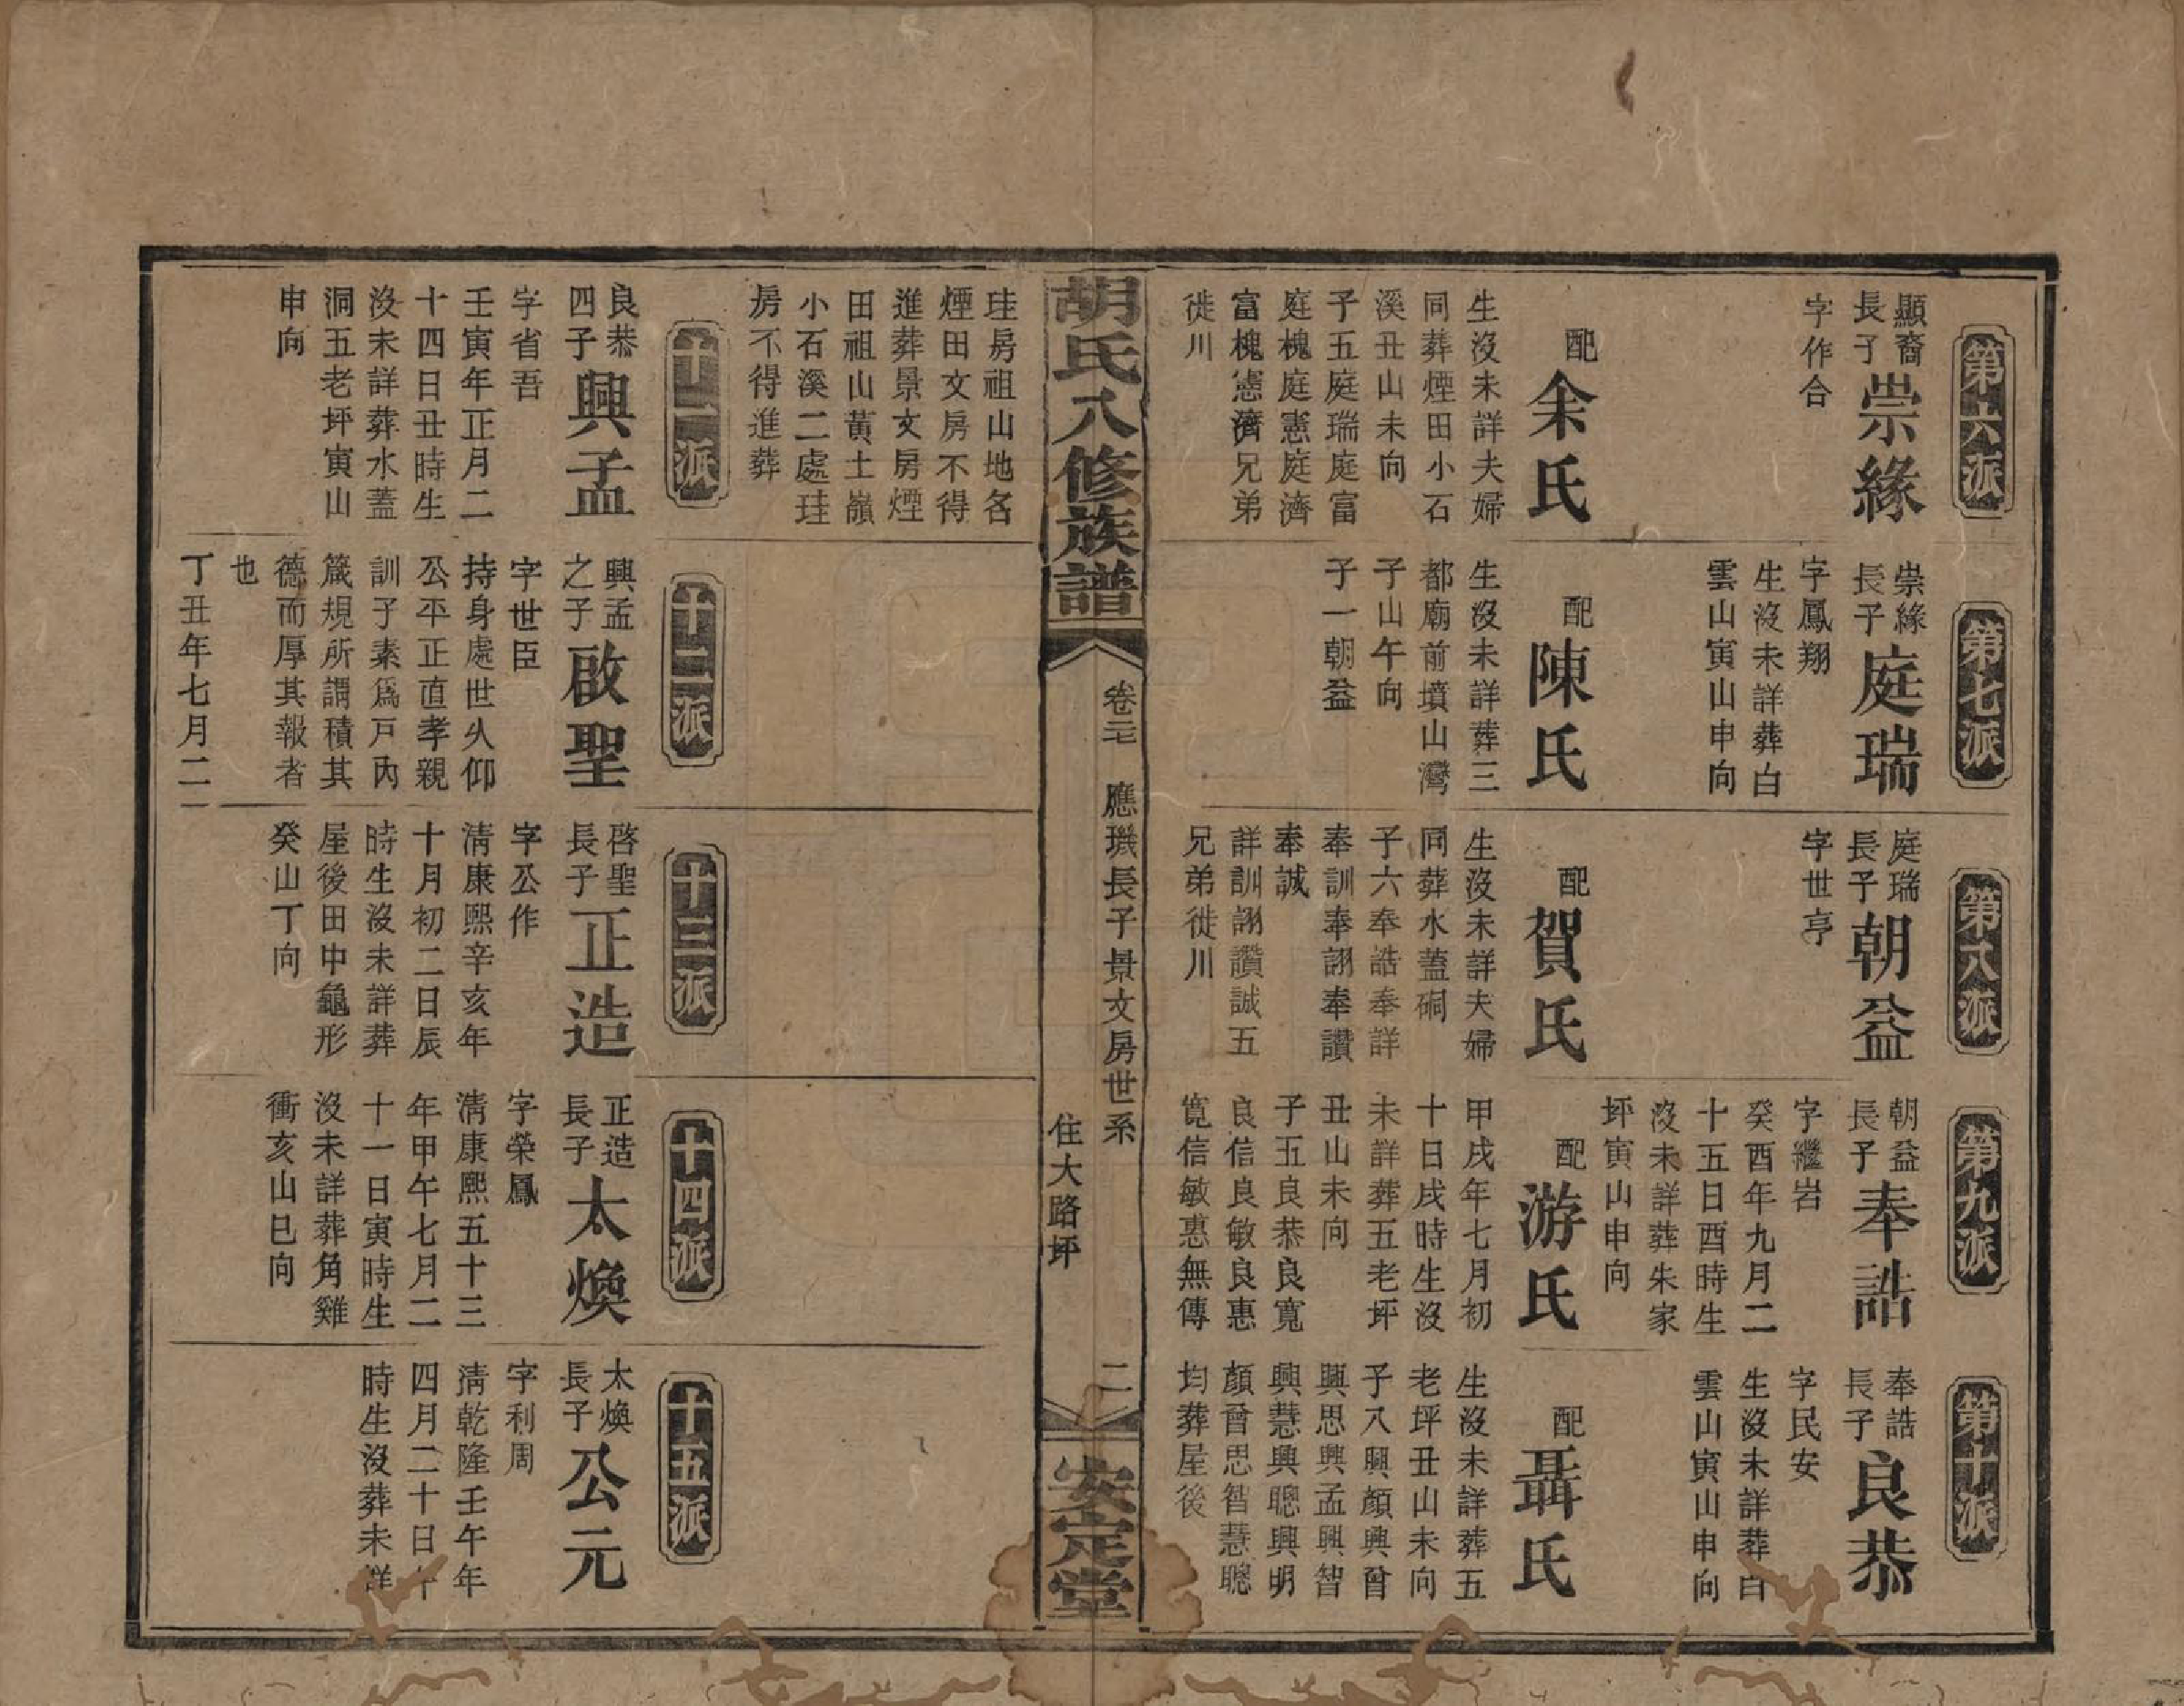 第六派
顯裔
長子
崇緣
字作合
配
余氏
生沒未詳夫婦
同葬煙田小石
溪丑山未向
子五庭瑞庭富
庭槐庭憲庭濟
富槐憲濟兄弟
徙川
第七派
崇緣
長子
庭瑞
字鳳翔
生沒未詳葬白
雲山寅山申向
配
陳氏
生沒未詳葬三
都廟前墳山灣
子山午向
子一朝益
第八派
庭瑞
長子
朝益
字世亨
配
賀氏
生沒未詳夫婦
同葬水蓋硐
子六奉誥奉詳
奉訓奉詡奉讚
奉誠
詳訓詡讚誠五
兄弟徙川
第九派
朝益
長子
奉誥
字繼岩
癸酉年九月二
十五日酉時生
沒未詳葬朱家
坪寅山申向
配
游氏
甲戌年七月初
十日戌時生沒
未詳葬五老坪
丑山未向
子五良恭良寬
良信良敏良惠
寬信敏惠無傳
第十派
奉誥
長子
良恭
字民安
生沒未詳葬白
雲山寅山申向
配
聶氏
生沒未詳葬五
老坪丑山未向
子八興顏興曾
興思興孟興智
興慧興聰興明
顏曾思智慧聰
均葬屋後
胡氏八修族譜
卷二七
應璣長子景文房世系
住大路坪
二
安定堂
珪房祖山地名
煙田文房不得
進葬景文房煙
田祖山黃土嶺
小石溪二處珪
房不得進葬
十一派
良恭
四子
興孟
字省吾
壬寅年正月二
十四日丑時生
沒未詳葬水蓋
洞五老坪寅山
申向
十二派
興孟
之子
啟聖
字世臣
持身處世久仰
公平正直孝親
訓子素為戶內
箴規所謂積其
德而厚其報者
也
丁丑年七月二
十三派
啓聖
長子
正造
字公作
清康熙辛亥年
十月初二日辰
時生沒未詳葬
屋後田中龜形
癸山丁向
十四派
正造
長子
太煥
字榮鳳
清康熙五十三
年甲午七月二
十一日寅時生
沒未詳葬角雞
衝亥山巳向
十五派
太煥
長子
公元
字利周
清乾隆壬午年
四月二十日午
時生沒葬未詳